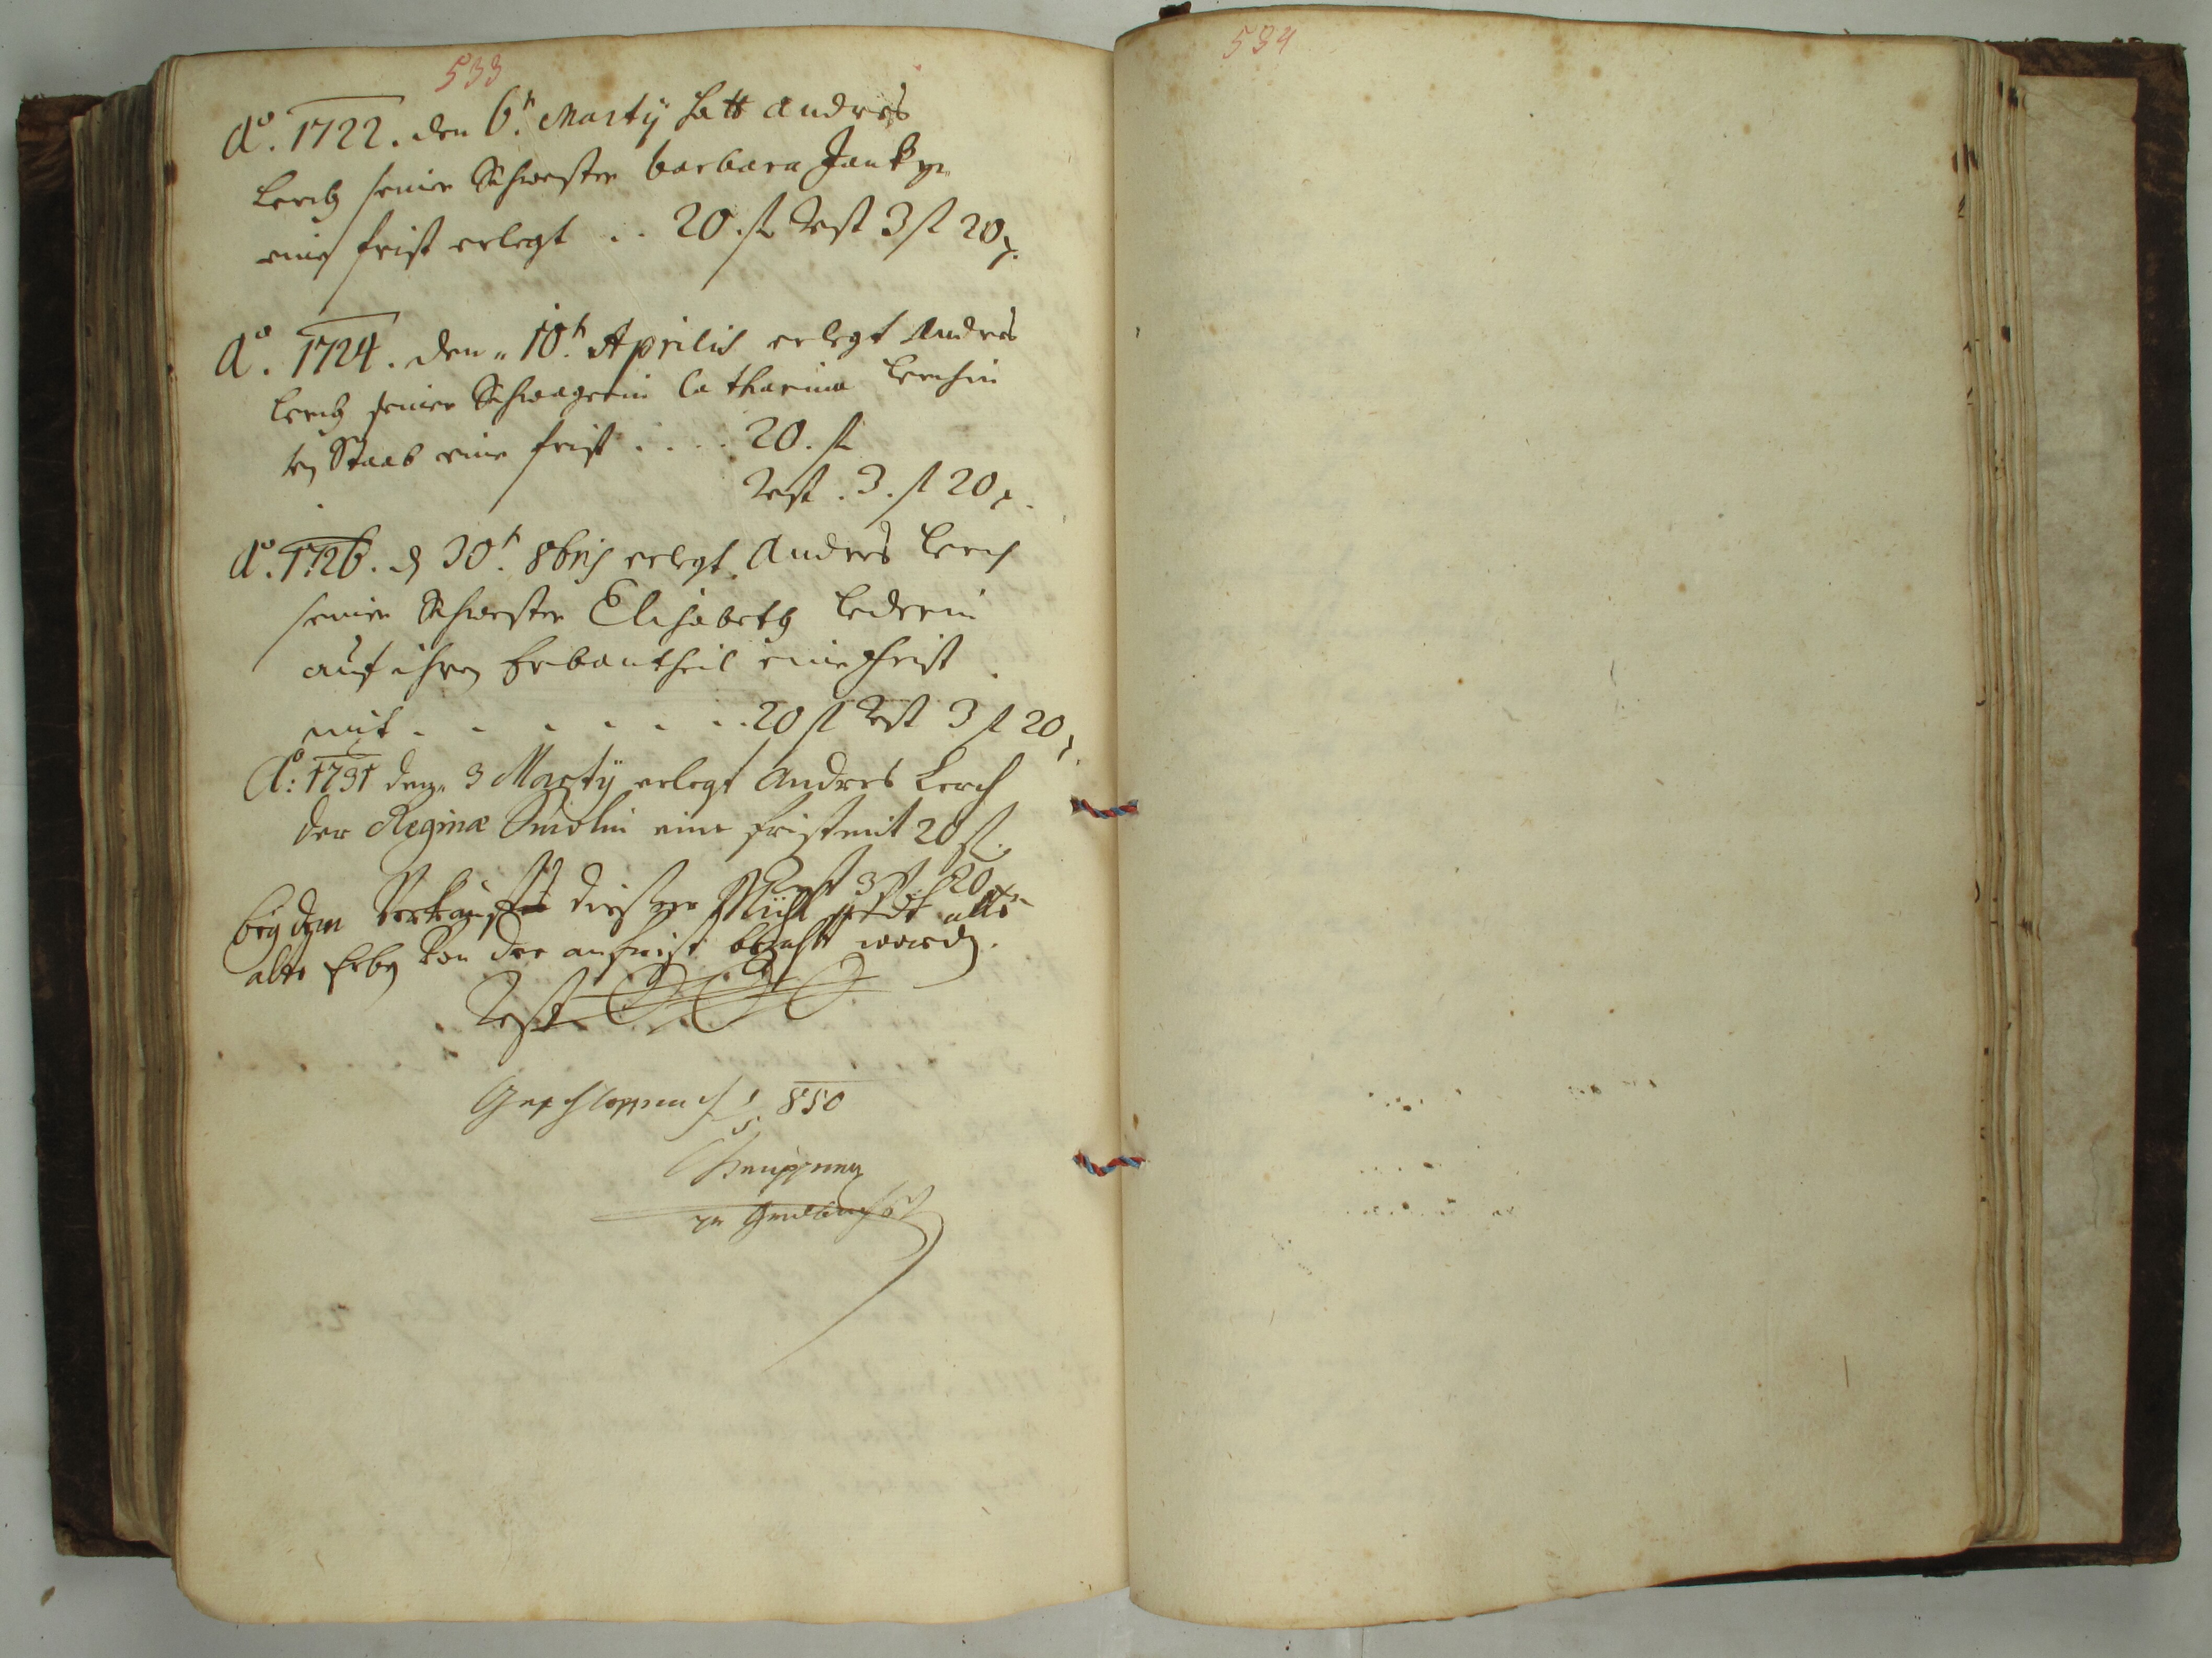 533
Ao. 1722. den 6t. Marty hatt Andres
Lerch seiner Schwester barbara Jankyn
eine frist erlegt .. 20. fl Rest 3 fl 20 x.
Ao. 1724. den 10t. Aprilis erlegt Andres
Lerch seiner Schwagerin Catharina Lerchin
Staab eine frist .... 20. fl
Rest . 3. fl 20 x.
Ao. 1726. d 30t. 8bris erlegt Andres Lerch
seiner Schwester Elisabeth Lederin
auf ihren Erbantheil eine Frist
mit . . . . . . . 20 fl Rest 3 fl 20 x.
Ao: 1731 den 3 Marty erlegt Andres Lerch
der Reginæ Smolin eine frist mit 20 fl.
Rest 3 fl 20 x
beÿ dem Verkauf dießer Mühl seÿdt alle
alte Erben von der anfrist bezahlt worden.
Rest
Geschlossen 850
534